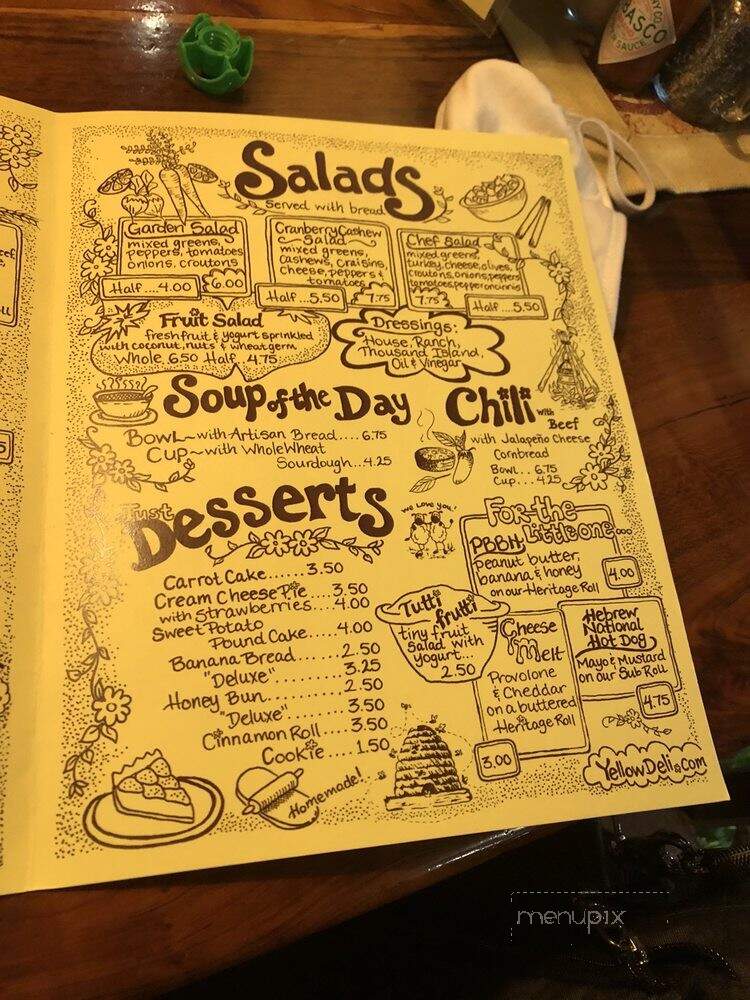 Salads
served with bread
Garden Salad
mixed greens,
peppers, tomatoes
onions, croutons
Half...4.00
6.00
Cranberry Cashew
Salad
mixed greens,
cashews, craisins,
cheese, peppers &
tomatoes
Half...5.50
7.75
Chef Salad
mixed greens,
turkey, cheese, olives,
croutons, onions, peppers
tomatoes, pepperoncinis
7.75
Half...5.50
Fruit Salad
fresh fruit & yogurt sprinkled
with coconut, nuts & wheat germ
Whole, 6.50 Half, 4.75
Dressings:
House, Ranch,
Thousand Island,
Oil & Vinegar
Soup of the Day
Bowl~with Artisan Bread....6.75
Cup~with Whole Wheat
Sourdough...4.25
Chili with
Beef
with Jalapeño Cheese
Cornbread
Bowl..6.75
Cup...4.25
Just
Desserts
Carrot Cake......3.50
Cream Cheese Pie...3.50
with strawberries...4.00
Sweet Potato
Pound Cake.....4.00
Banana Bread....2.50
"Deluxe".......3.25
Honey Bun.......2.50
"Deluxe".......3.50
Cinnamon Roll....3.50
Cookie....1.50
Homemade!
We Love You!
Tutti
frutti
tiny fruit
salad with
yogurt...
2.50
For the
Little one...
PBBH
peanut butter,
banana & honey
on our Heritage Roll
4.00
Cheese
Melt
Provolone
& Cheddar
on a buttered
Heritage Roll
3.00
Hebrew
National
Hot Dog
Mayo & Mustard
on our Sub Roll
4.75
YellowDeli.com
SAUCE
menupix